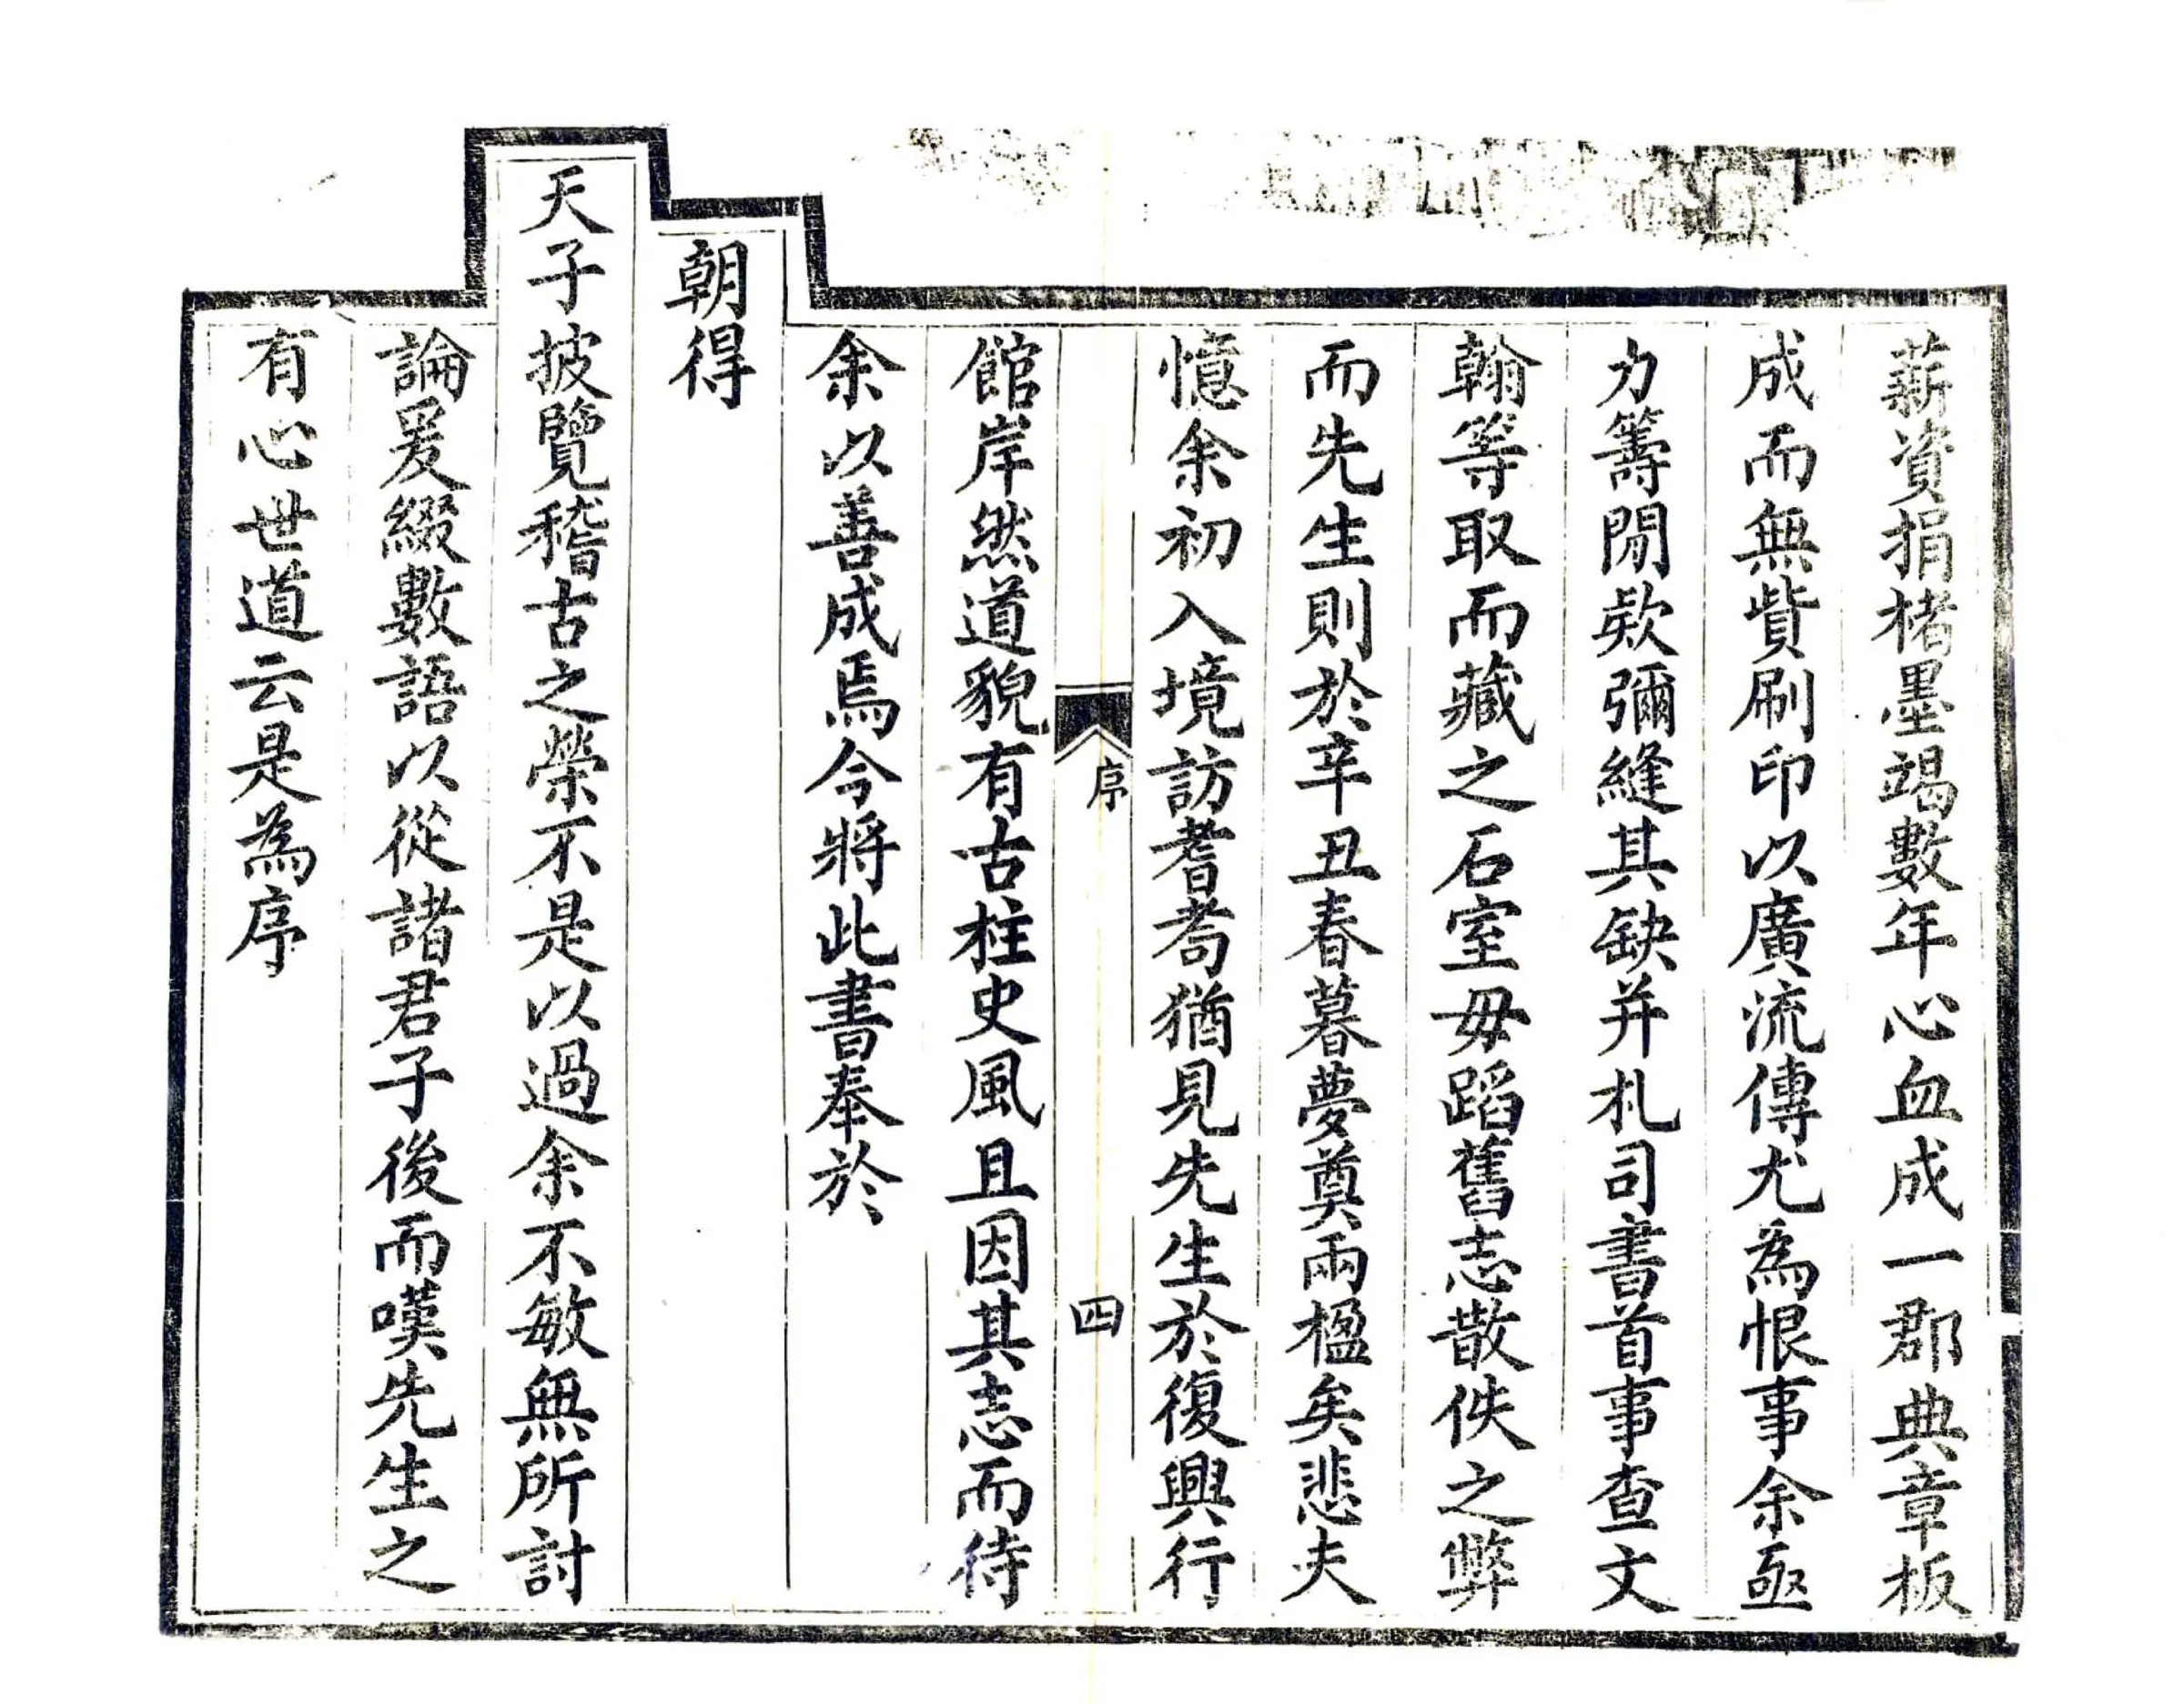 薪資捐楮墨竭數年心血成一郡典章板
成而無貲刷印以廣流傳尤為恨事余亟
力籌閒款彌縫其缺并札司書首事查文
翰等取而藏之石室毋蹈舊志散佚之弊
而先生則於辛丑春暮夢奠兩楹矣悲夫
憶余初入境訪耆耇猶見先生於復興行
序
四
館岸然道貌有古柱史風且因其志而待
余以善成焉今將此書奉於
朝得
天子披覽稽古之榮不是以過余不敏無所討
論爰綴數語以從諸君子後而嘆先生之
有心世道云是為序